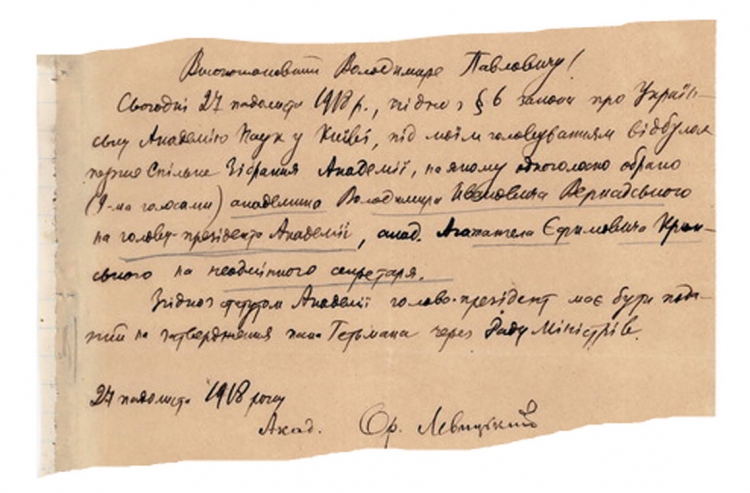 Високоповажний Володимире Павловичу!
Сьогодні 27 падолиста 1918 р., згідно з § 6 закона про Україн-
ську Академію Наук у Київі, під моїм головуванням відбулося
перше Спільне Зібрання Академії, на якому одноголосно обрано
(9-ма голосами) академика Володимира Ивановича Вернадського
на голову-президента Академії, акад. Агатангела Єфимовича Крим-
ського на неодмінного секретаря.
Згідно з статутом Академії голова-президент має бути пода-
ний на затвердження пана Гетьмана через Раду Міністрів.
27 падолиста 1918 року
Акад. Ор. Левицький